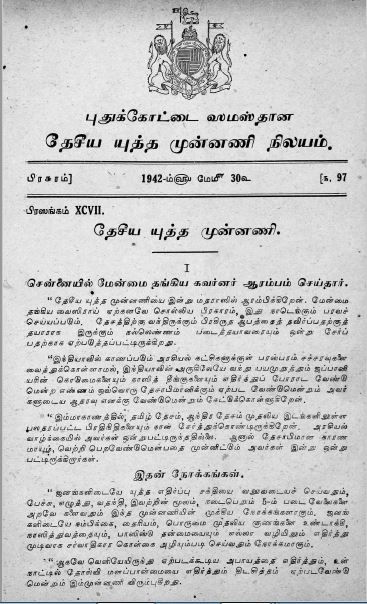 புதுக்கோட்டை ஸமஸ்தான
தேசீய யுத்த முன்னணி நிலயம்.
பிரசுரம்] 1942-ம்௵ மே௴ 30௳ [ந. 97
பிரஸங்கம் XCVII.
தேசீய யுத்த முன்னணி.
I
சென்னையில் மேன்மை தங்கிய கவர்னர் ஆரம்பம் செய்தார்.
"தேசீய யுத்த முன்னணியை இன்று மதராஸில் ஆரம்பிக்கிறேன். மேன்மை
தங்கிய வைஸிராய் ஏற்கனவே சொல்லிய பிரகாரம், இது நாடெங்கும் பரவச்
செய்யப்படும். தேசத்திற்கு வந்திருக்கும் பிரகிருத ஆபத்தைத் தவிர்ப்பதற்குத்
தயாராக இருக்கும் நல்லெண்ணம் படைத்தயாவரையும் ஒன்று சேர்ப்
பதற்காக ஏற்படுத்தப்பட்டிருக்கிறது.
"இந்தியாவில் காணப்படும் அரசியல் கட்சிகளுக்குள் பரஸ்பரம் சச்சரவுகளை
வைத்துக்கொள்ளாமல், இந்தியாவின் அருகிலேயே வந்து பயமுறுத்தும் ஜப்பானி
யரின் கொடுமைகளையும் நாஸித் திங்குகளையும் எதிர்த்துப் போராட வேண்டு
மென்ற எண்ணம் ஒவ்வொரு தேசாபிமானிக்கும் ஏற்பட வேண்டுமென்றும் அவர்
களுடைய ஆதரவு எனக்கு வேண்டுமென்றும் கேட்டுக்கொள்ளுகிறேன்.
"இம்மாகாணத்தில், தமிழ் தேசம், ஆந்திர தேசம் முதலிய இடங்களிலுள்ள
பலதரப்பட்ட பிரதிநிதிகளையும் நான் சேர்த்துக்கொண்டிருக்கிறேன். அரசியல்
வாழ்க்கையில் அவர்கள் ஒன்றுபட்டிருந்ததில்லை. ஆனால் தேசாபிமான காரண
மாயும், வெற்றி பெறவேண்டுமென்பதை முன்னிட்டும் அவர்கள் இன்று ஒன்று
பட்டிருக்கிறார்கள்.
இதன் நோக்கங்கள்.
"ஜனங்களிடையே யுத்த எதிர்ப்பு சக்தியை வலுவடையச் செய்வதும்,
பேச்சு, எழுத்து, வதந்தி, இவற்றின் மூலம், நடைபெறும் 5-ம் படை வேலைகளை
அறவே களைவதும் இந்த முன்னணியின் முக்கிய நோக்கங்களாகும். ஜனங்
களிடையே நம்பிக்கை, தைரியம், பொறுமை முதலிய குணங்களை உண்டாக்கி,
நாஸித்துவத்தையும், பாஸிஸ்டு தன்மையையும் எல்லா வழியிலும் எதிர்த்து
முடிவாக சர்வாதிகார கொள்கை அழியும்படி செய்வதும் நோக்கமாகும்.
"ஆகவே வெளியேயிருந்து ஏற்படக்கூடிய அபாயத்தை எதிர்த்தும், உள்
நாட்டில் தோல்வி மனப்பான்மையை எதிர்த்தும் திடசித்தம் ஏற்படவேண்டு
மென்றும் இம்முன்னணி விரும்புகிறது.